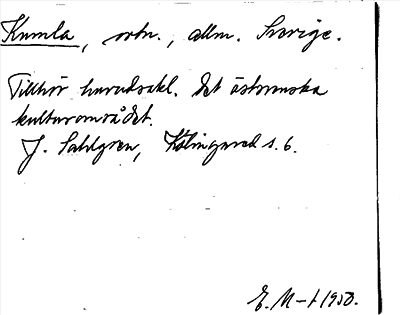 Kumla, ortn., allm. Sverige.
Tillhör huvudsakl. det östsvenska
kulturområdet.
J. Sahlgren, Kölingared s. 6.
E. M-t 1950.